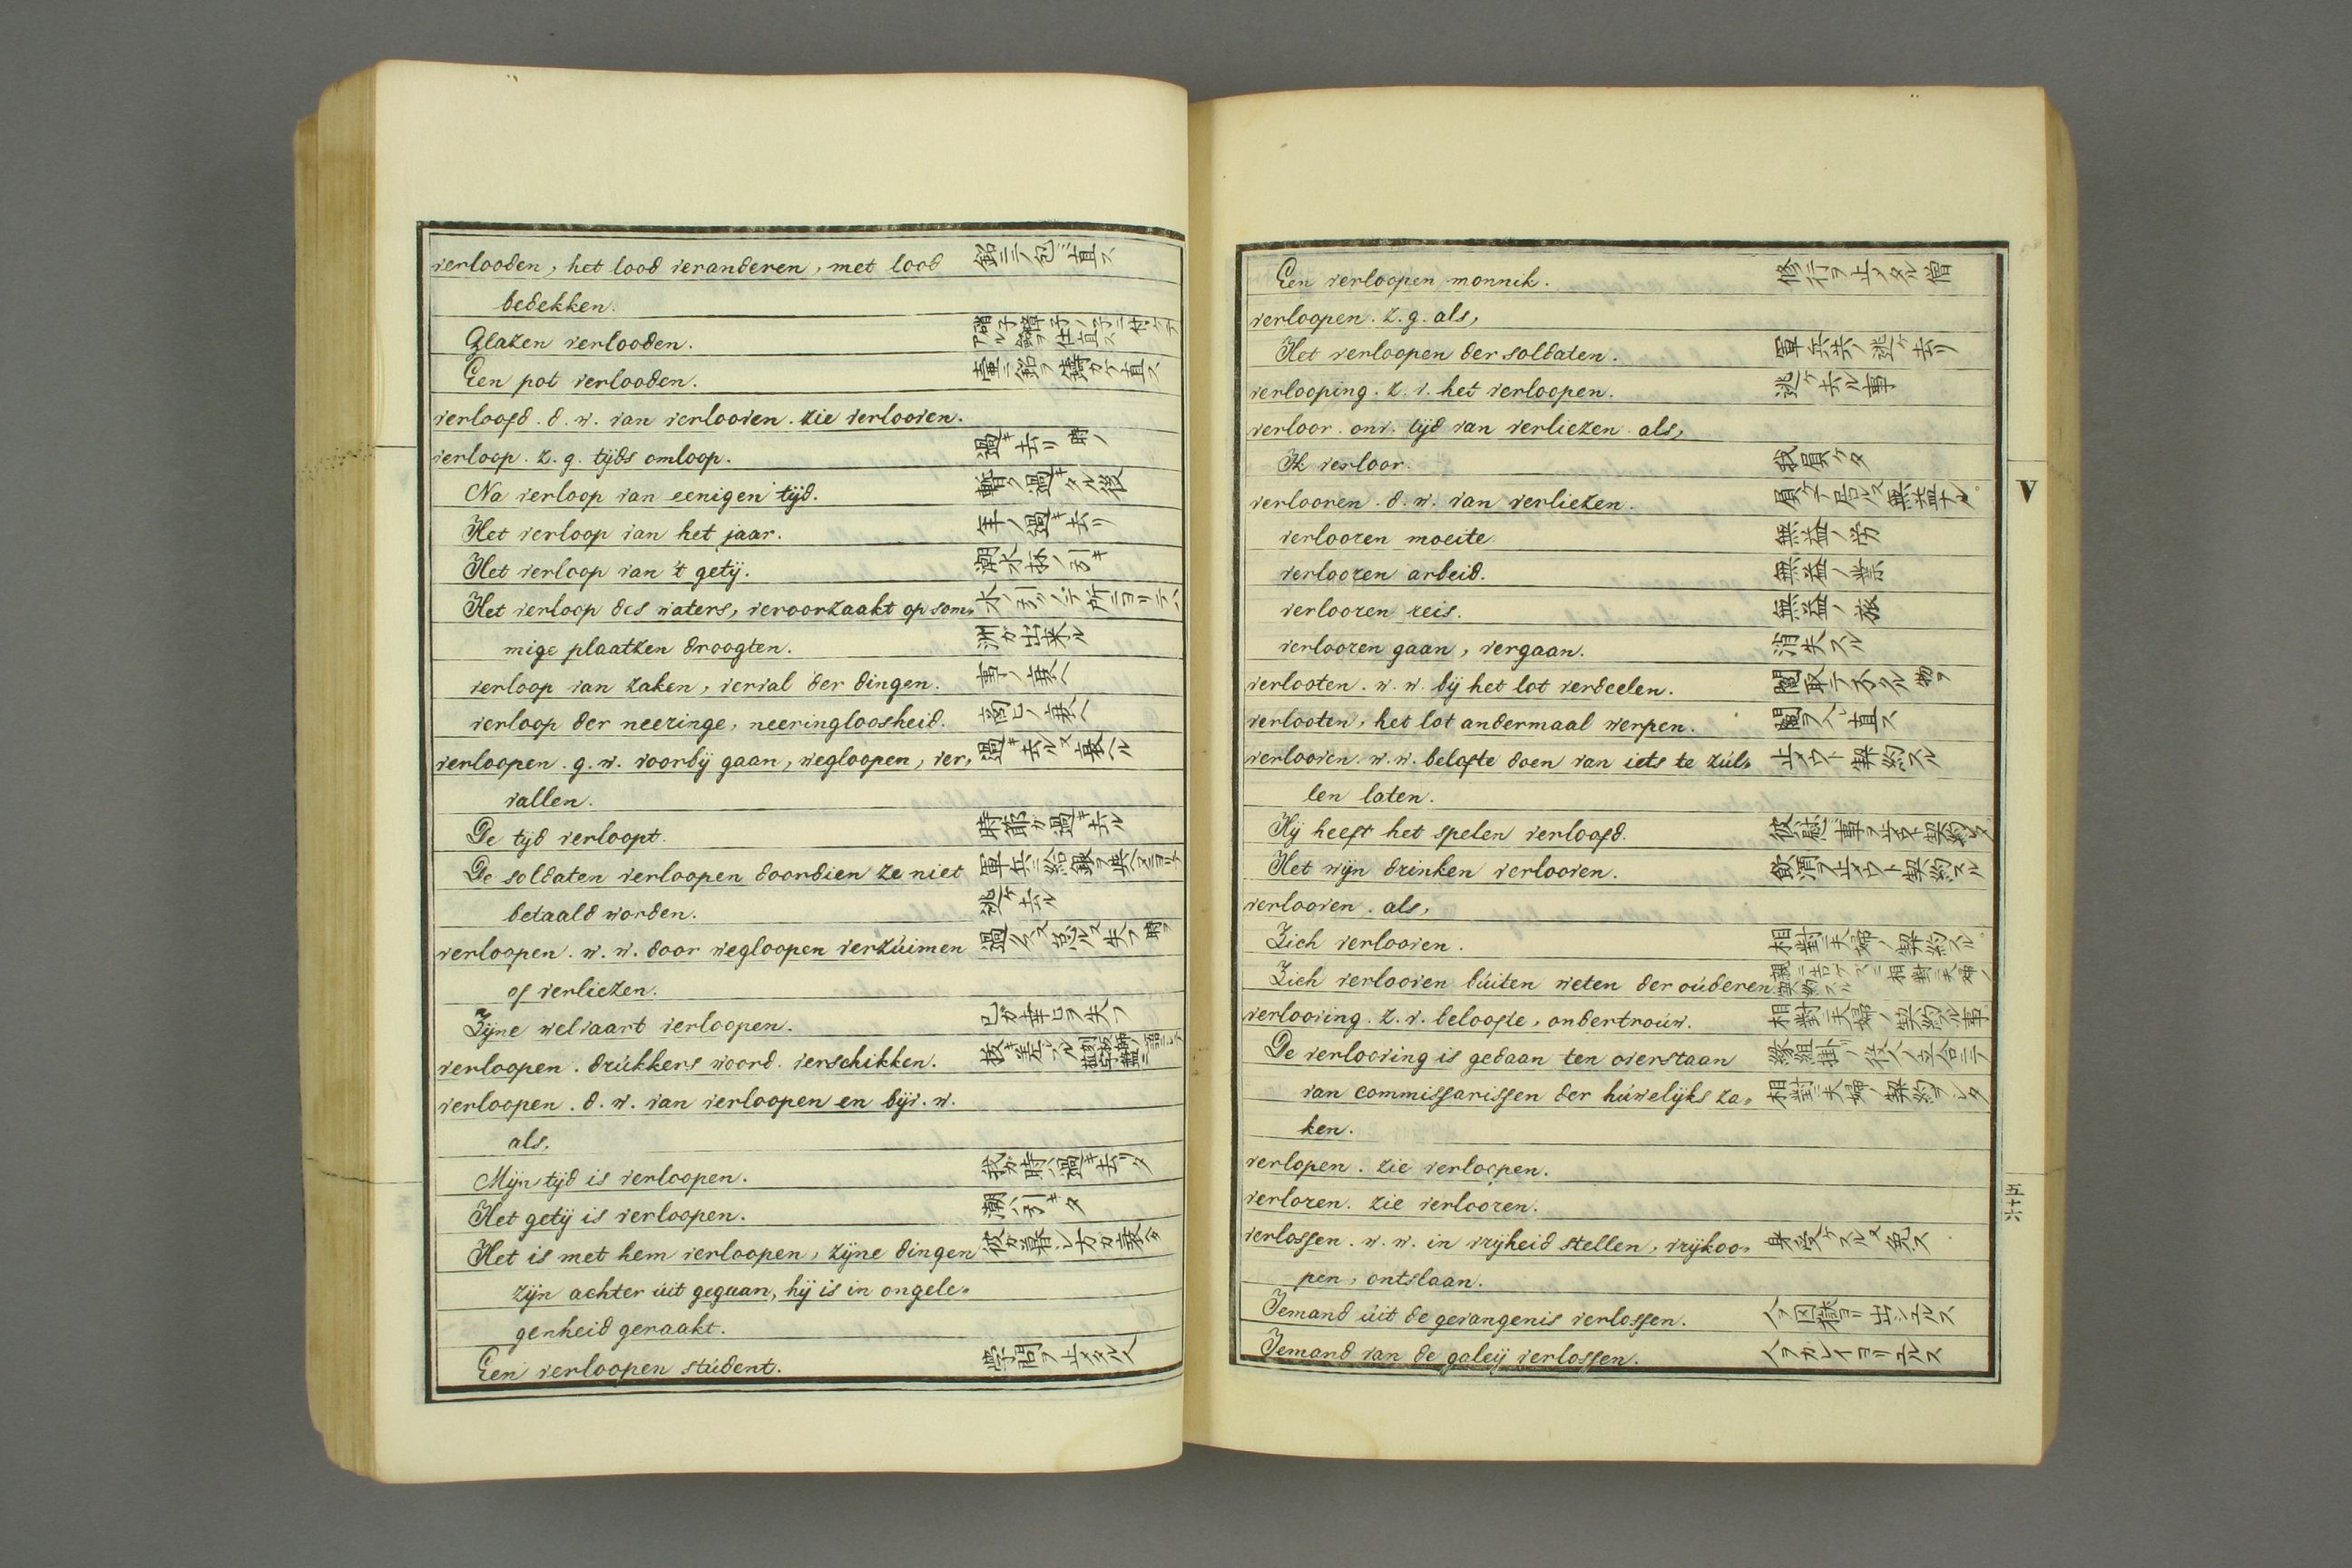 verlooden, het lood veranderen, met lood 鉛ニテ包ミ直ス
bedekken.
Glazen verlooden.
Een pot verlooden. 壷ニ鉛ヲ鑄カケ直ス
verloofd. d. w. van verlooven. zie verlooven.
verloop. z. g. tijds omloop. 時ノ過キ去リ
Na verloop van eenigen tijd. 暫ク過キタル後
Het verloop van het jaar. 年ノ過キ去リ
Het verloop van 't getij. 潮水杯ノ引キ
Het verloop des waters, veroorzaakt op som- 水ノ引ニテ所ニヨリテハ
mige plaatzen droogten. 洲ガ出来ル
verloop van zaken, verval der dingen. 事ノ衰ヘ
verloop der neeringe, neeringloosheid. 商ヒノ衰ヘ
verloopen. g. w. voorbij gaan, wegloopen, ver- 過キ去ル又衰ヘル
vallen.
De tijd verloopt. 時節ガ過キ去ル
De soldaten verloopen doordien ze niet
betaald worden. 逃ケ去ル
verloopen. w. w. door wegloopen verzúimen
of verliezen.
Zijne welvaart verloopen. 己ガ幸ヒヲ失フ
verloopen. drúkkers woord. verschikken.
verloopen. d. w. van verloopen en bijv. w.
als,
Mijn tijd is verloopen. 我ガ時ハ過キ去リタ
Het getij is verloopen. 潮ハ引キタ
Het is met hem verloopen, zijne dingen 彼ガ暮シ方ガ衰ヘタ
zijn achter úit gegaan, hij is in ongele-
genheid geraakt.
Een verloopen stúdent. 学問ヲ止メタル人
Een verloopen monnik. 修行ヲ止メタル僧
verloopen. z. g. als,
Het verloopen der soldaten. 軍兵共ノ逃ケ去リ
verlooping. z. v. het verloopen. 逃ケ去ル事
verloor. onv. tijd van verliezen als,
Ik verloor. 我負ケタ
verlooren. d. w. van verliezen. 負ケテ居ル又無益ナル
verlooren moeite 無益ノ労
verlooren arbeid. 無益ノ業
verlooren reis. 無益ノ旅
verlooren gaan, vergaan. 消失スル
verlooten. w. w. bij het lot verdeelen. 物ヲ鬮取ニテ分ケル
verlooten, het lot andermaal werpen. 鬮ヲ入レ直ス
verlooven. w. w. belofte doen van iets te zúl- 止メウト契約スル
len laten.
Hij heeft het spelen verloofd. 彼慰ミ事ヲ止メウト契約シタ
Het wijn drinken verlooven. 飲酒ヲ止メウト契約スル
verlooven. als,
Zich verlooven. 相對ニ夫婦ノ契約スル
Zich verlooven búiten weten der oúderen 親ニ告ケズニ相對ニ夫婦ノ契約スル
verlooving. z. v. belofte, ondertroúw. 相對ニ夫婦ノ契約スル事
De verlooving is gedaan ten overstaan 縁組掛リノ役人ノ立合ニテ
van commissarissen der húwelijks za- 相對ニ夫婦ノ契約ヲシタ
ken.
verlopen. zie verloopen.
verloren. zie verlooren.
verlossen. w. w. in vrijheid stellen, vrijkoo- 身受ケスル又免ス
pen, ontslaan.
Iemand úit de gevangenis verlossen. 人ヲ囚獄ヨリ出シユルス
Iemand van de galeij verlossen. 人ヲガレイヨリユルス
V
五十六